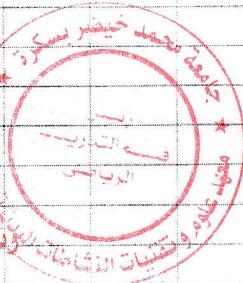 جامعة محمد خيضر بسكرة
معهد علوم و تقنيات النشاطات البدنية
قسم التدريب
الرياضي